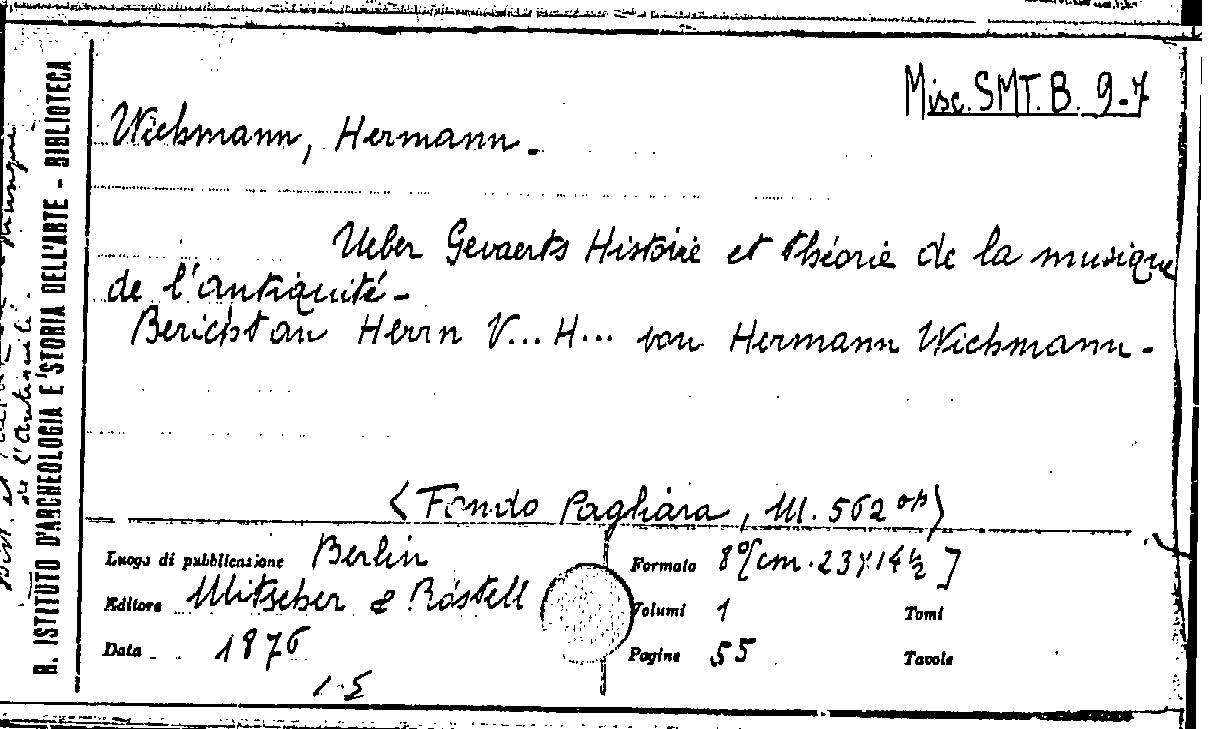 Misc. SMT. B. 9-7
Wichmann, Hermann.
Ueber Gevaerts Histoire et théorie de la musique
de l'antiquité-
Bericht an Herrn V... H... von Hermann Wichmann.
(Fondo Pagliara, M. 562 op)
Luogo di pubblicazione Berlin
Formato 8°[cm. 23x14½]
Editore Mitscher & Röstell
Volumi 1 Tomi
Data 1876
Pagine 55 Tavole
R. ISTITUTO D'ARCHEOLOGIA E STORIA DELL'ARTE - BIBLIOTECA
de l'antiquité.